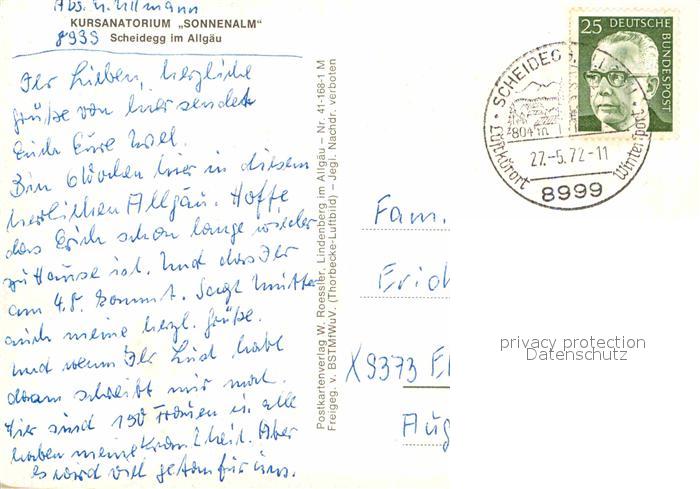 Abs. U. Ullmann
KURSANATORIUM „SONNENALM“
8999 Scheidegg im Allgäu
Ihr Lieben, herzliche
Grüße von hier sendet
Euch Eure
Bin 6 Wochen hier in diesem
herrlichen Allgäu. Hoffe
das Erich schon lange wieder
zu Hause ist. Und das Ihr
am 4.8. kommt. Sagt Mutter
auch meine herzl. Grüße.
Und wenn Ihr Lust habt
dann schreibt mir mal.
Hier sind 150 Frauen u. alle
haben meine Krankheit. Aber
es wird viel getan für uns.
Postkartenverlag W. Roessler, Lindenberg im Allgäu – Nr. 41-168-1 M
Freigeg. v. BSTMfWuV. (Thorbecke-Luftbild) – Jegl. Nachdr. verboten
25 DEUTSCHE BUNDESPOST
SCHEIDEGG
804 m
27.-5.72-11
Luftkurort
Wintersport
8999
Fam.
Erich
X9373
Aug
privacy protection
Datenschutz